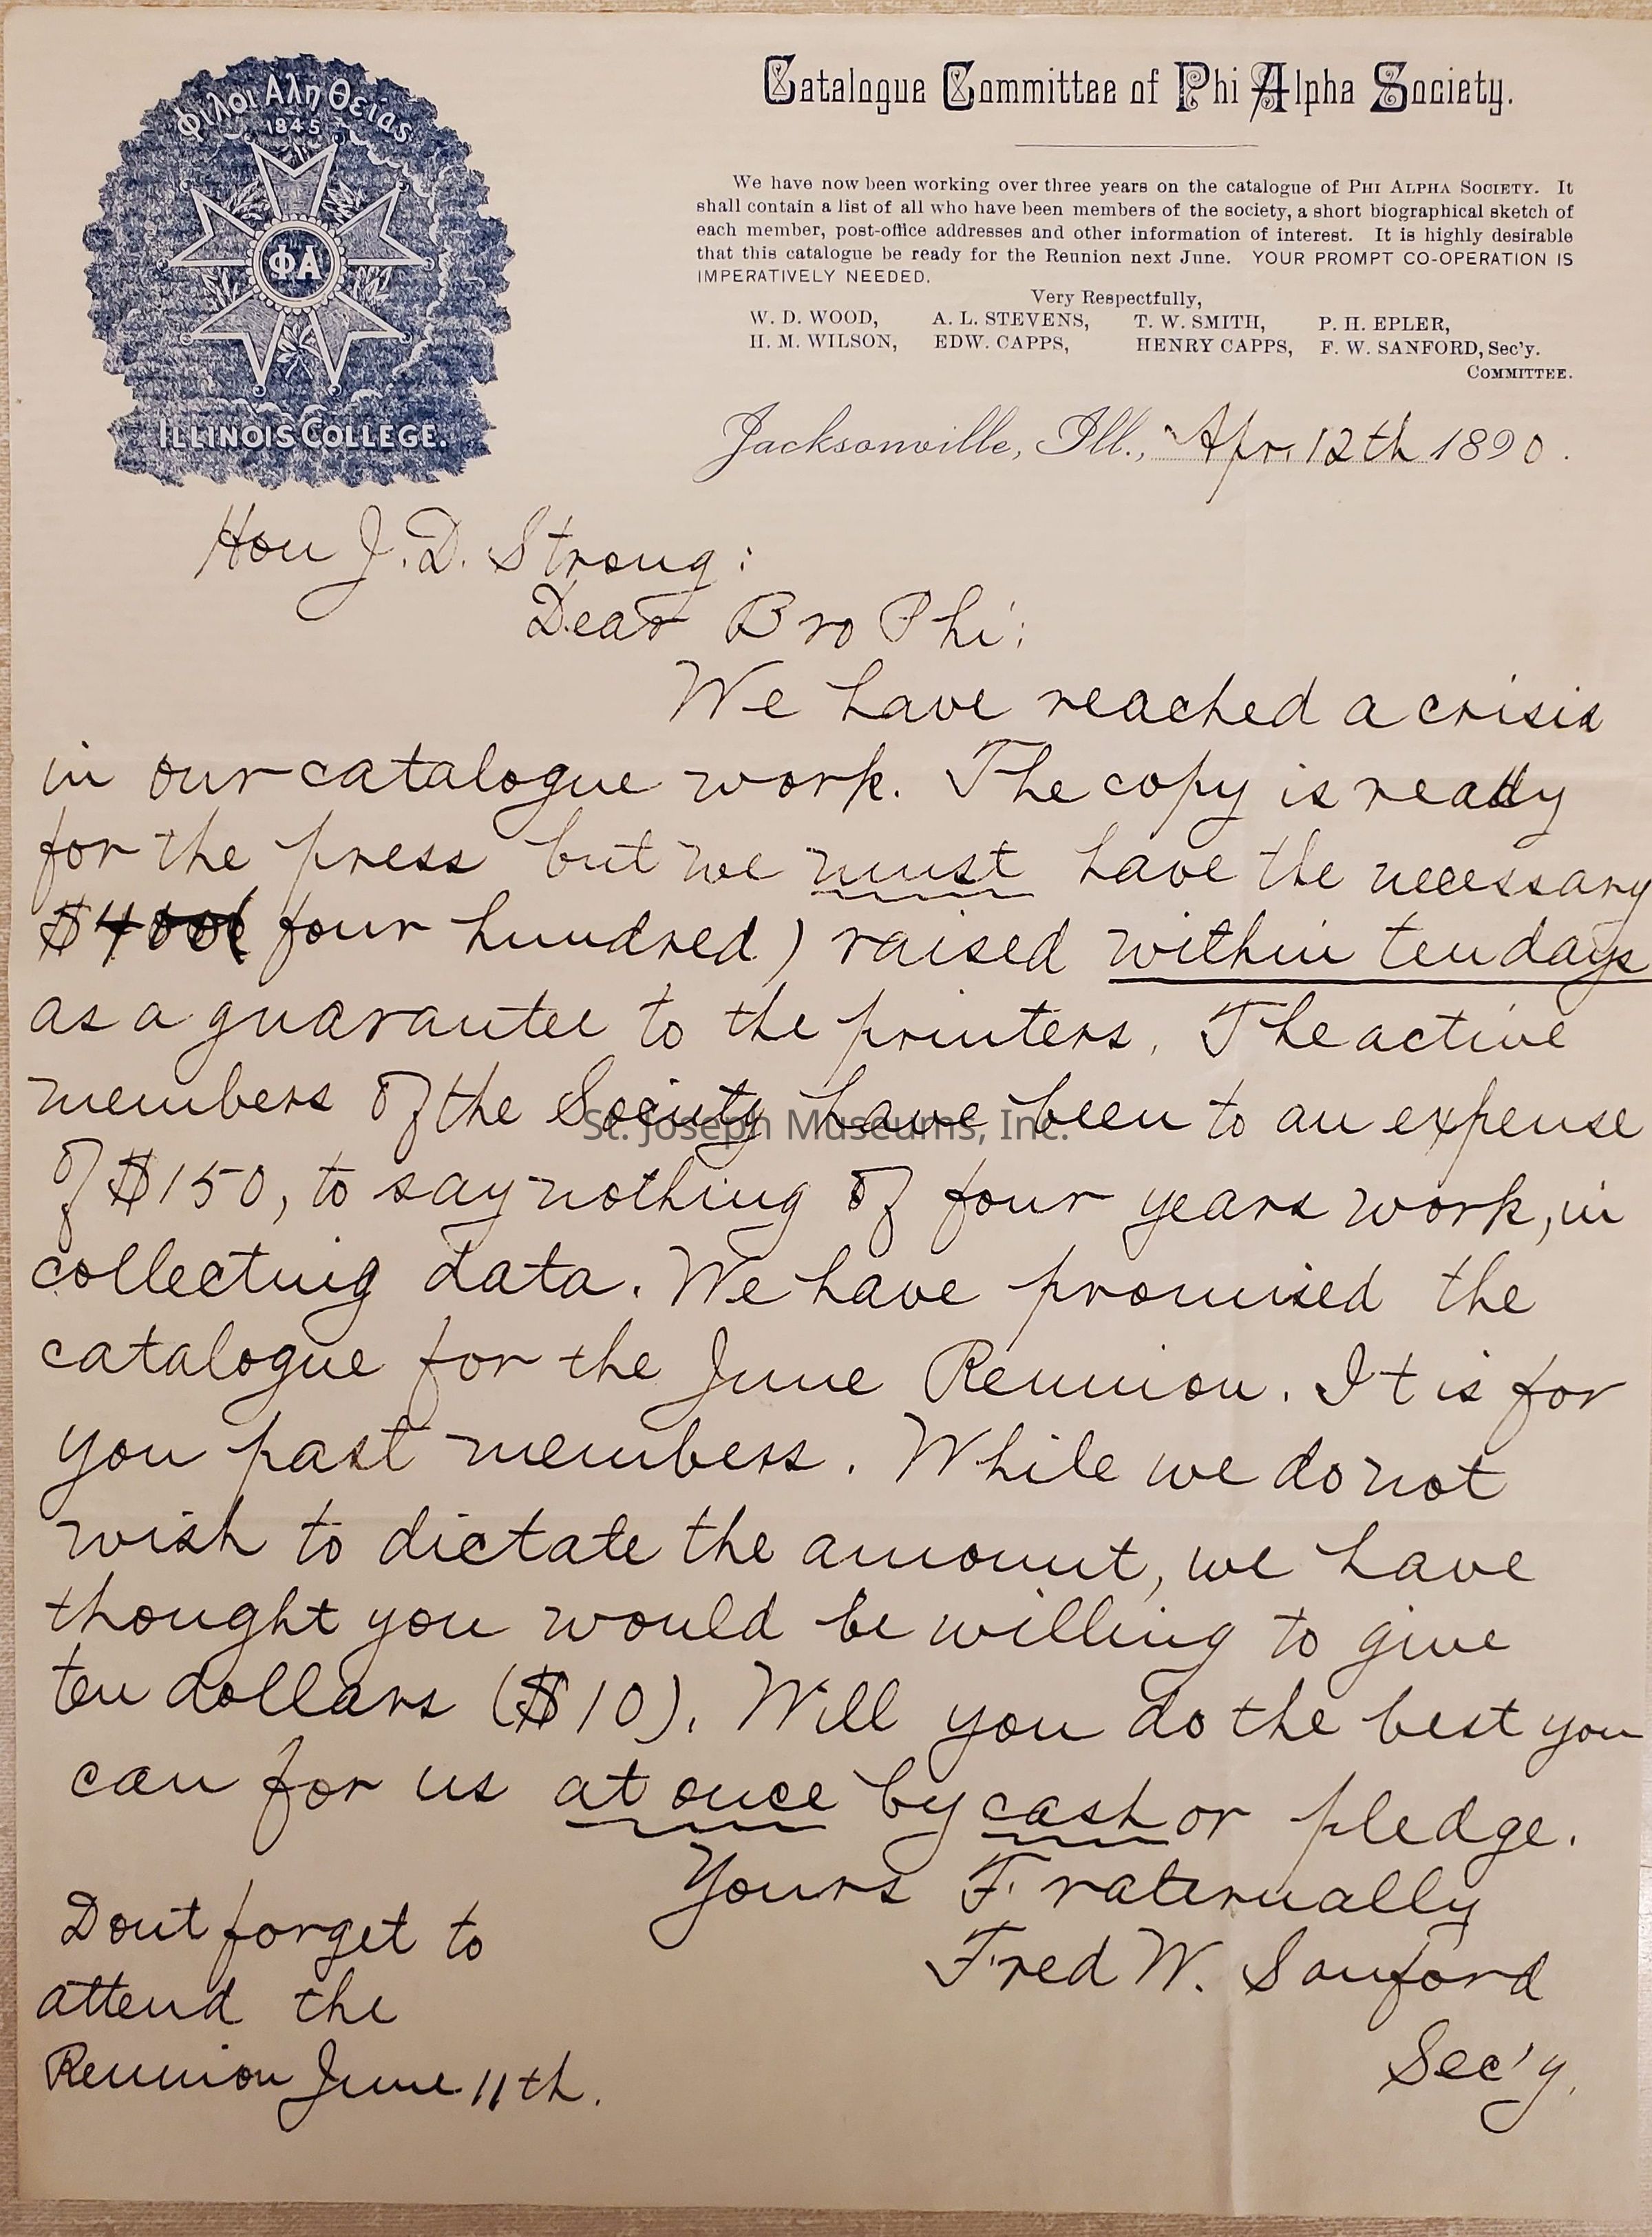 Φίλοι Αλη Θείας
1845
ΦΑ
ILLINOIS COLLEGE.
Catalogue Committee of Phi Alpha Society.
We have now been working over three years on the catalogue of PHI ALPHA SOCIETY. It
shall contain a list of all who have been members of the society, a short biographical sketch of
each member, post-office addresses and other information of interest. It is highly desirable
that this catalogue be ready for the Reunion next June. YOUR PROMPT CO-OPERATION IS
IMPERATIVELY NEEDED.
Very Respectfully,
W. D. WOOD, A. L. STEVENS, T. W. SMITH, P. H. EPLER,
H. M. WILSON, EDW. CAPPS, HENRY CAPPS, F. W. SANFORD, Sec'y.
COMMITTEE.
Jacksonville, Ill., Apr. 12th 1890.
Hon J. D. Strong:
Dear Bro Phi:
We have reached a crisis
in our catalogue work. The copy is ready
for the press but we must have the necessary
$400( four hundred) raised within ten days
as a guarantee to the printers. The active
members of the Society have been to an expense
of $150, to say nothing of four years work, in
collecting data. We have promised the
catalogue for the June Reunion. It is for
you past members. While we do not
wish to dictate the amount, we have
thought you would be willing to give
ten dollars ($10). Will you do the best you
can for us at once by cash or pledge.
Yours Fraternally
Fred W. Sanford
Sec'y.
Dont forget to
attend the
Reunion June 11th.
St. Joseph Museums, Inc.